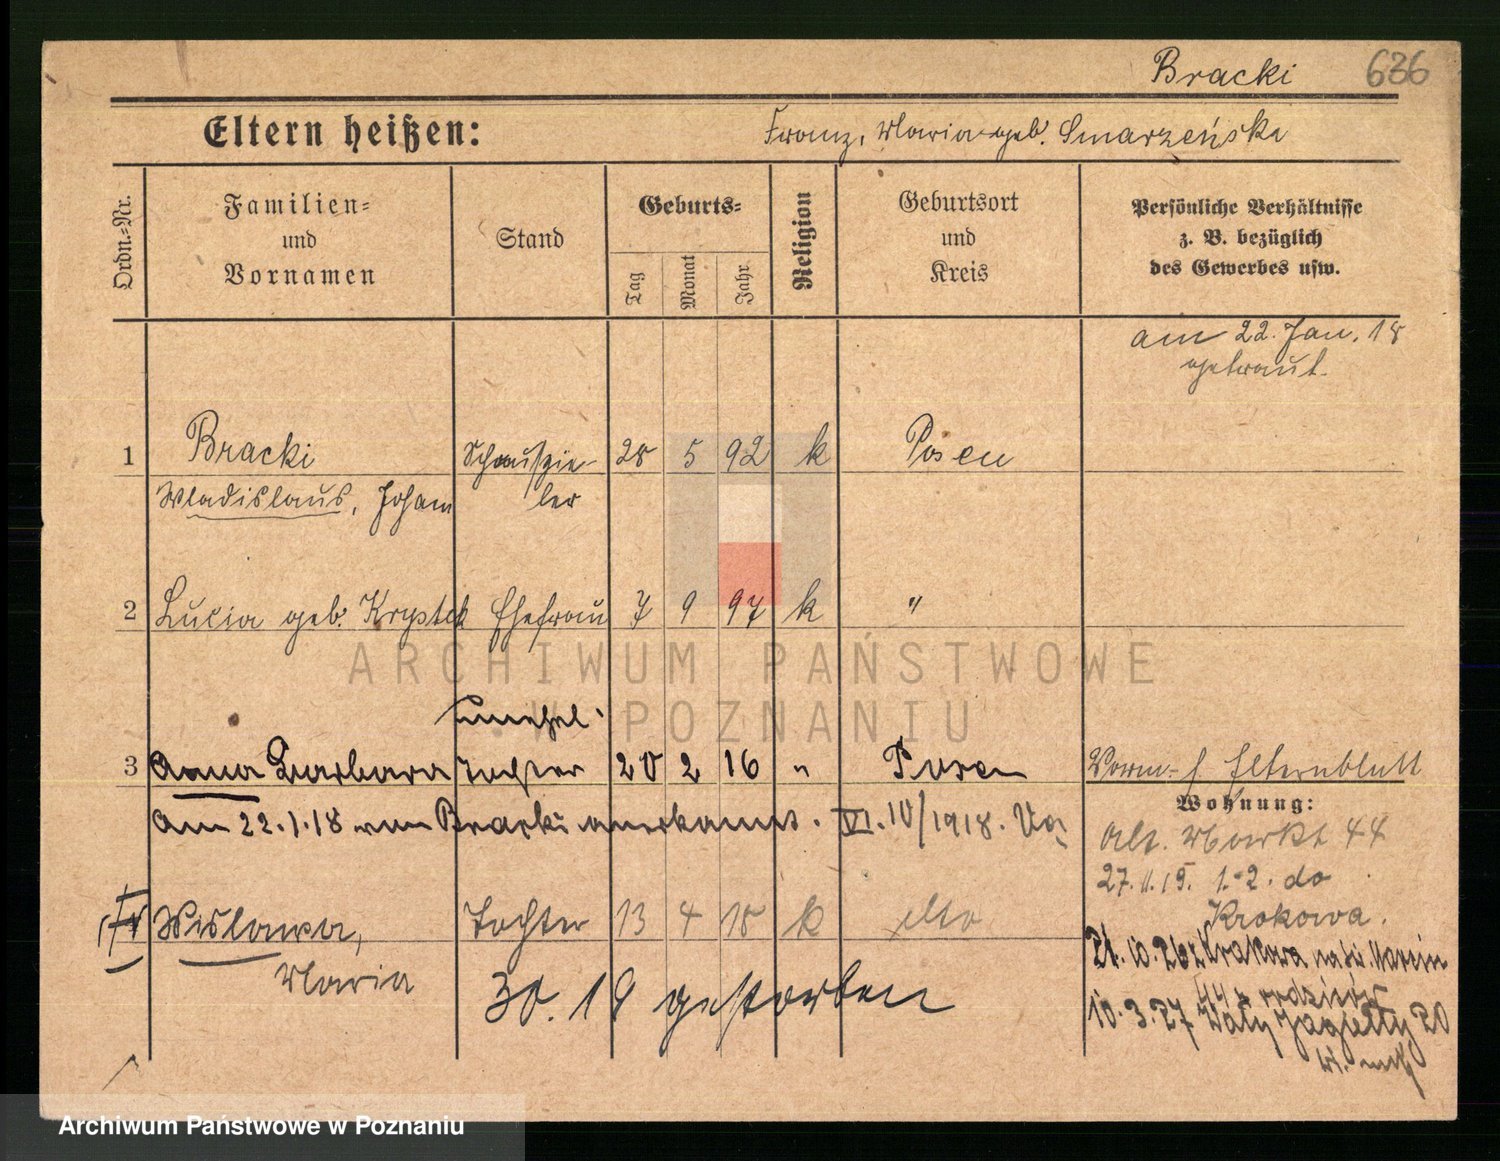 Bracki 636
Eltern heißen: Franz, Maria geb. Smarzeńska
Ordn.-Nr.
Familien-
und
Vornamen
Stand
Geburts-
Tag
Monat
Jahr
Religion
Geburtsort
und
Kreis
Persönliche Verhältnisse
z. B. bezüglich
des Gewerbes usw.
am 22. Jan. 18
getraut.
1 Bracki Schauspie- 28 5 92 k Posen
Wladislaus, Johann ler
2 Lucia geb. Krystek Ehefrau 7 9 97 k "
ARCHIWUM PAŃSTWOWE
W POZNANIU
unehel.
3 Anna Barbara Tochter 20 2 16 " Posen Vorm. f. Elternblatt
Wohnung:
am 22.1.18 von Bracki anerkannt. VI. 10/1918.
Alt. Markt 44
27.11.19. 1.-2. do
Krakowa.
Wislawa, Tochter 13 4 18 k dto
Maria
30. 19 gestorben
21.10.26 z Krakowa Marcin
44 z rodziców
10.3.27 Wały Jagiełły 20
Archiwum Państwowe w Poznaniu